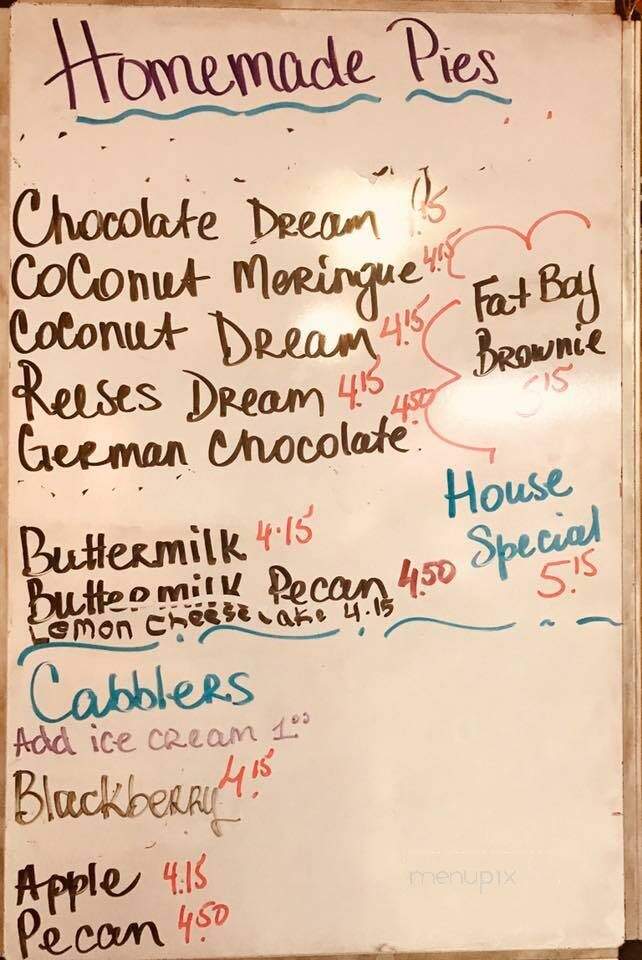 Homemade Pies
Chocolate Dream
Coconut Meringue 4.15
Coconut Dream 4.15
Reeses Dream 4.15
German Chocolate 4.50
Fat Boy
Brownie
5.15
House
Special
5.15
Buttermilk 4.15
Buttermilk Pecan 4.50
Lemon Cheesecake 4.15
Cabblers
Add ice cream 1.00
Blackberry 4.15
Apple 4.15
Pecan 4.50
menupix